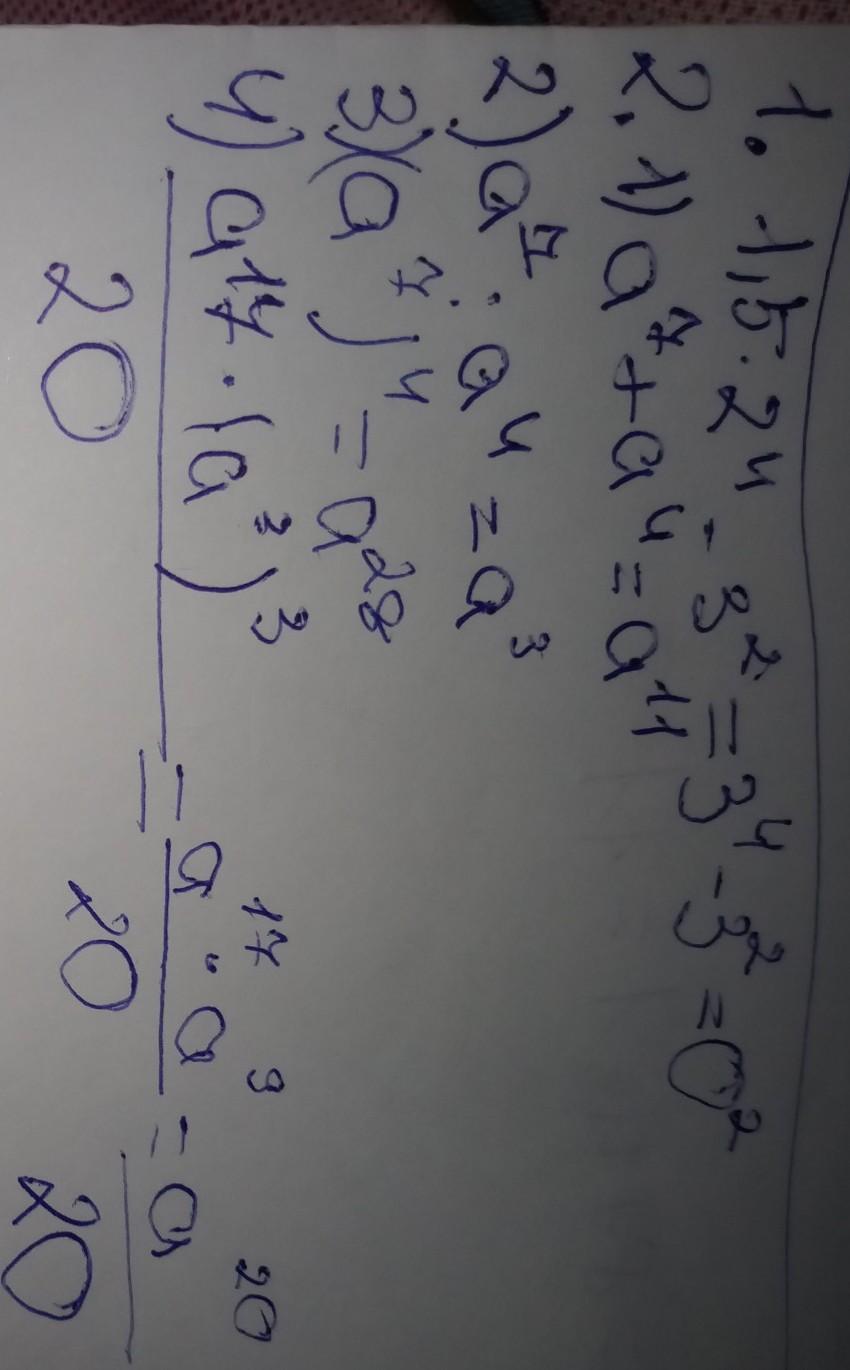 1. 1,5·2⁴ - 3² = 3⁴ - 3² = 0²
2. 1) a⁷ + a⁴ = a¹¹
2) a⁷ : a⁴ = a³
3) (a⁷)⁴ = a²⁸
4) a¹⁷ · (a³)³ / 20 = a¹⁷ · a⁹ / 20 = a²⁰ / 20